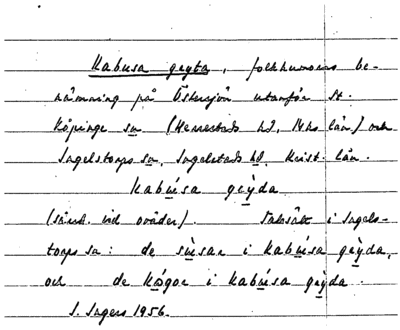 Kabusa geyta, folkhumorns be-
nämning på Östersjön utanför St.
Köpinge sn (Herrestads hd, Mhs län) och
Ingelstorps sn, Ingelstads hd, Krist. län.
Kabúsa gèyda
(särsk. vid oväder). Talesätt i Ingels-
torps sn: de sùsar i kabúsa gèyda,
och de kògor i kabúsa gèyda.
S. Ingers 1956.